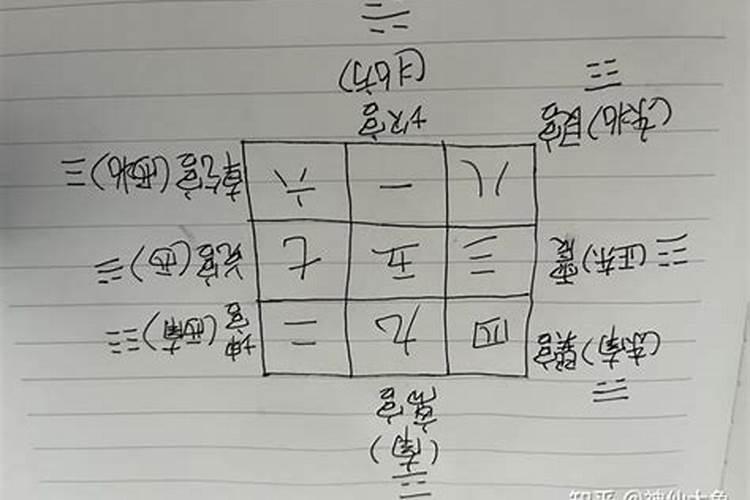 (南)
离宫
(东南)巽宫 四 九 二 坤宫(西南)
(正东)震 三 五 七 兑宫(西)
(东北)艮宫 八 一 六 乾宫(西北)
坎宫
(北方)
知乎 @神仙大